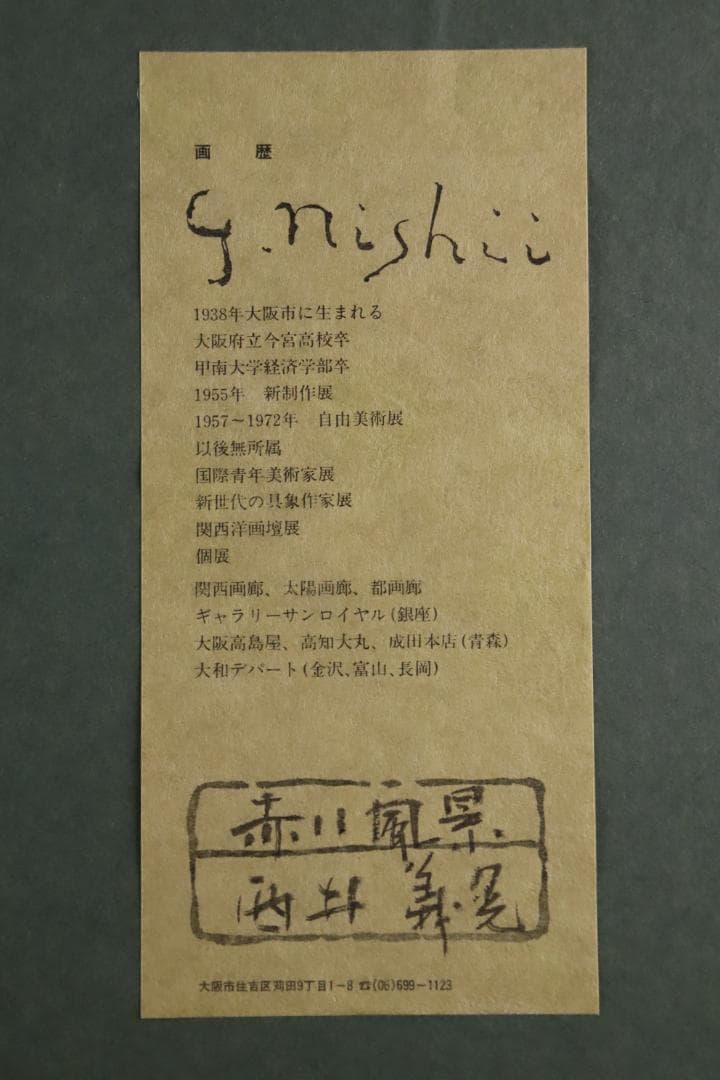 画 歴
y.nishii
1938年大阪市に生まれる
大阪府立今宮高校卒
甲南大学経済学部卒
1955年 新制作展
1957〜1972年 自由美術展
以後無所属
国際青年美術家展
新世代の具象作家展
関西洋画壇展
個展
関西画廊、太陽画廊、都画廊
ギャラリーサンロイヤル(銀座)
大阪高島屋、高知大丸、成田本店(青森)
大和デパート(金沢、富山、長岡)
赤い風景
西井 義晃
大阪市住吉区苅田9丁目1-8 ☎(06)699-1123